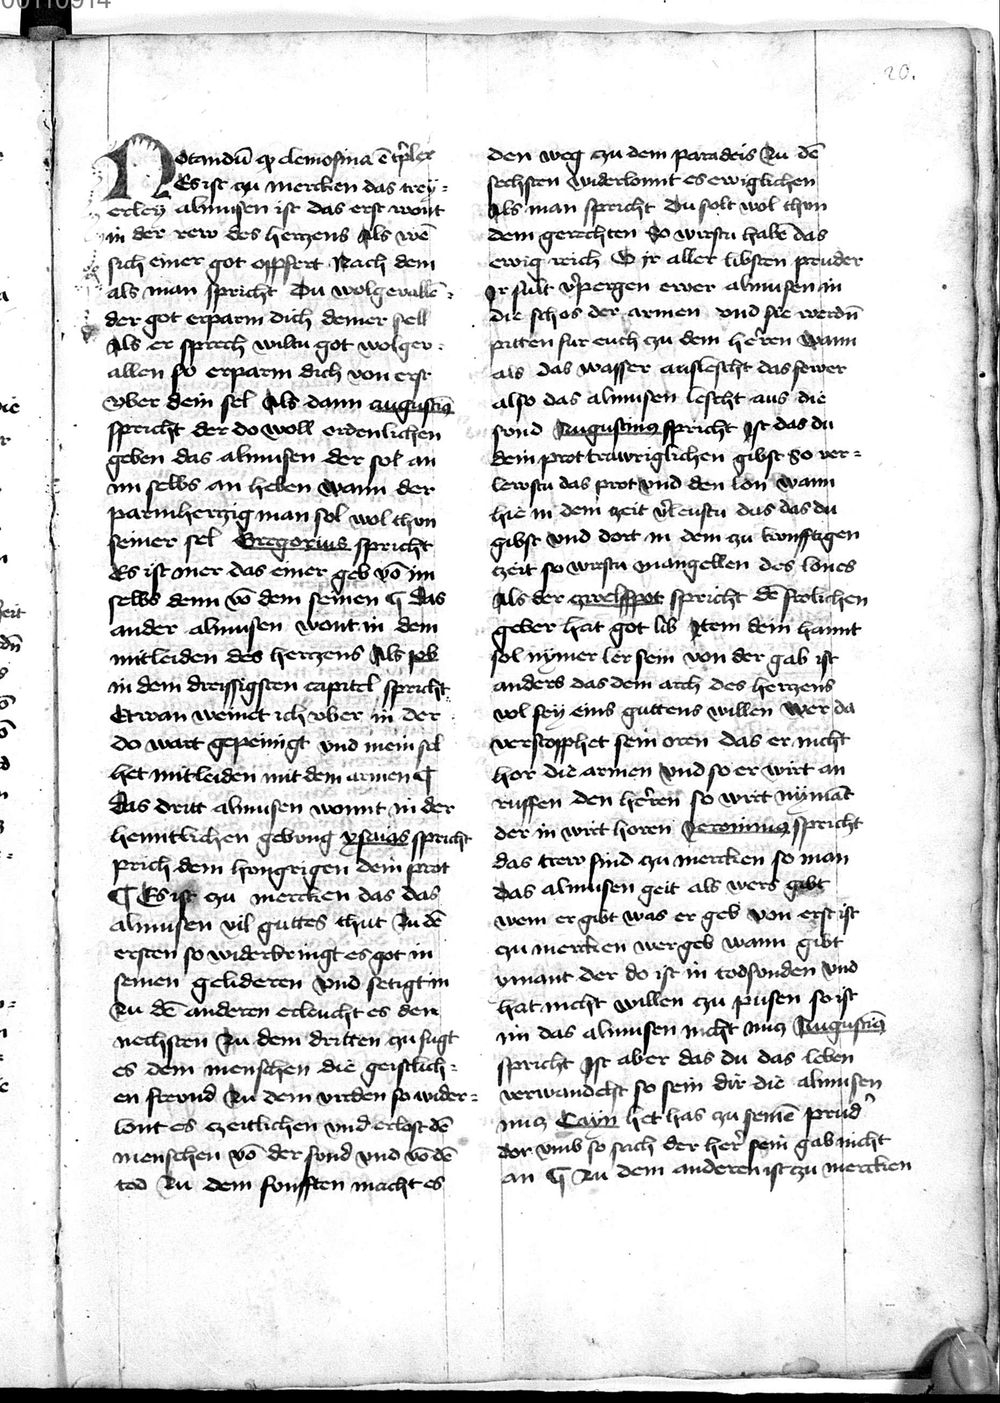 00110914
20.
Notandū qꝫ elemosina ē tͥplex
Es ist zu mercken das trey-
erley almusen ist das erst wont
in der rew des hertzens Als wē
sich einer got opffert Nach dem
als man spricht Du wolgevallē-
der got erparm dich deiner sell
Als er sprech wiltu got wolgev-
allen so erparm dich von erst
vber dein sel Als dann augustiꝰ
spricht der do woll ordenlichen
geben das almusen der sol an
im selbs an heben Wann der
parmhertzig man sol wol thun
seiner sel Gregorius spricht
Es ist mer das einer geb vō im
selbs denn vō dem seinen ¶ Das
ander almusen wont in dem
mitleiden des hertzens Als Job
in dem dreissigsten capitel spricht
Etwan weinet ich vber in der
do wart gepeinigt vnd mein sel
het mitleiden mit dem armen ¶
Das dritt almusen wonnt in der
henntlichen gebung ysaias spricht
prich dem hongrigen dein prot
¶ Es ist zu mercken das das
almusen vil guttes thut Zu dē
ersten so widerbringt es got in
seinen gelideren vnd setigt in
Zu dē anderen erleucht es den
nechsten Zu dem dritten zu fugt
es dem menschen die geistlich-
en freund Zu dem virden so wider-
lont es zeitlichen vnd erlost dē
menschen vō der sond vnd vō dē
tod Zu dem fonfften macht es
den weg zu dem paradeis Zu dē
sechsten widerlonnt es ewiglichen
Als man spricht Du solt wol thun
dem gerechten So wirstu habē das
ewig reich O ir aller libsten pruder
Ir sult v̓pergen ewer almusen in
die schos der armen vnd sie werdn̄
pitten fur euch zu dem herren Wann
als das wasser auslescht das fewer
also das almusen lescht aus die
sond Augustinus spricht Ist das du
dein prot trawriglichen gibst So ver-
lewstu das prot vnd den lon Wann
hie in dem zeit v̓leustu das das du
gibst vnd dort in dem zu konfftigen
zeit so wirstu mangellen des lones
Als der zwelffpot spricht dē frolichen
geber hat got lib Item dein hannt
sol nymer ler sein von der gab ist
anders das dem arch des hertzens
vol sey eins guttens willen Wer da
verstopphet sein oren das er nicht
hor die armen Vnd so er wirt an
ruffen den herren so wirt nymāt
der in wirt horen Jeronimus spricht
das trew sind zu mercken so man
das almusen geit als wers gibt
wem er gibt was er geb von erst ist
zu mercken wer geb wann gibt
ymant der do ist in todsonden vnd
hat nicht willen zu pusen so ist
im das almusen nicht nucz Augustiꝰ
spricht Ist aber das du das leben
verwandelst so sein dir die almusen
nucz Cayn het has zu seinē prud̓
dor vmb so sach der her sein gab nicht
an ¶ Zu dem anderen ist zu mercken